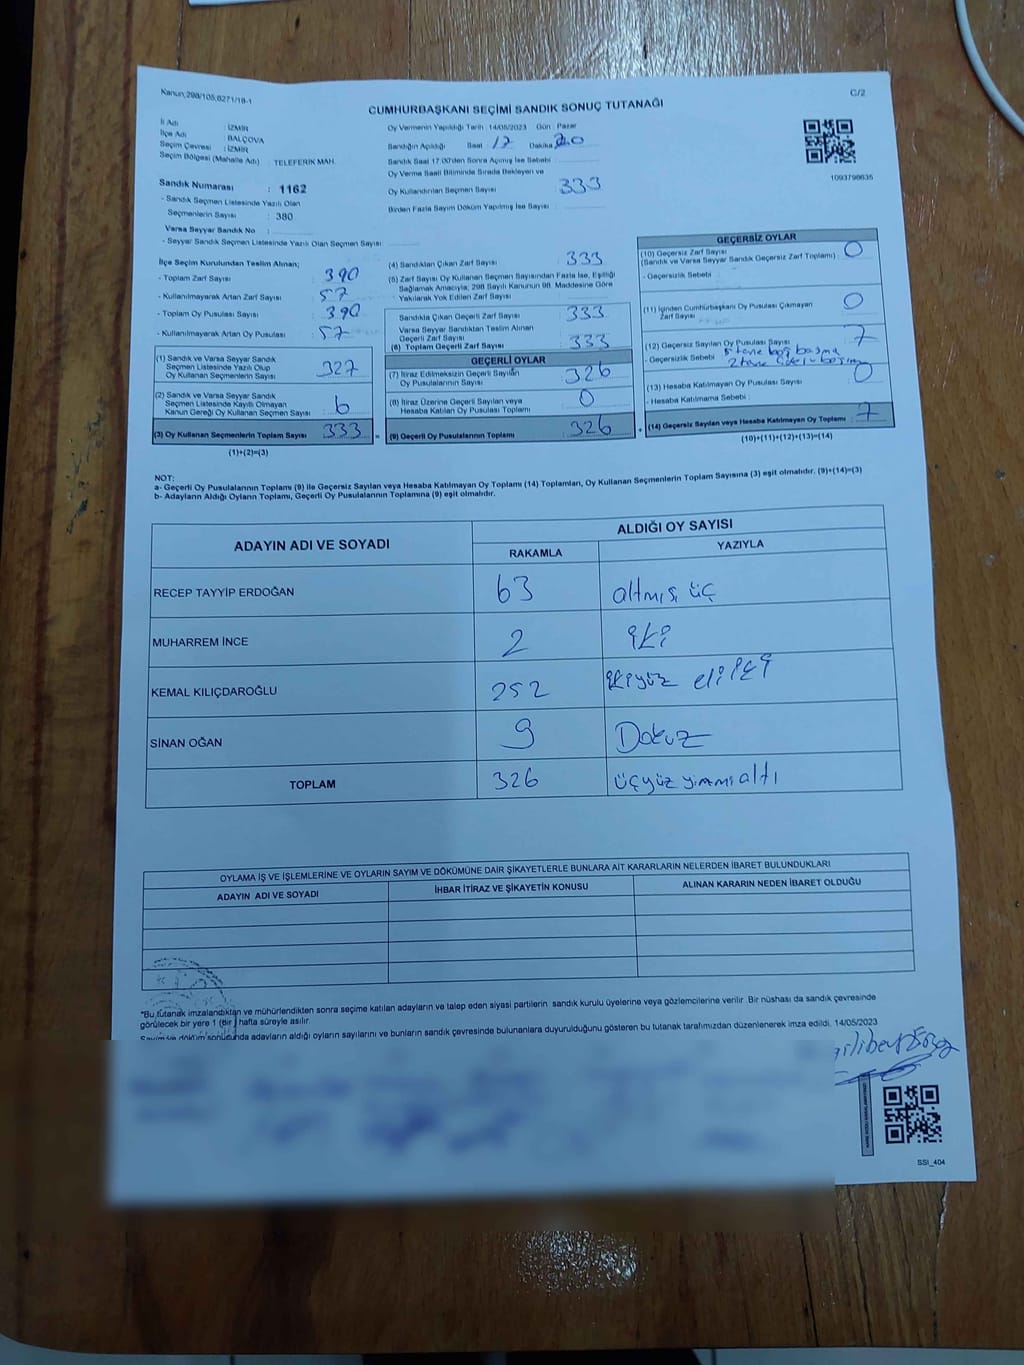 Kanun:298/105,6271/18-1
C/2
CUMHURBAŞKANI SEÇİMİ SANDIK SONUÇ TUTANAĞI
İl Adı : İZMİR
İlçe Adı : BALÇOVA
Seçim Çevresi : İZMİR
Seçim Bölgesi (Mahalle Adı) : TELEFERİK MAH.
Sandık Numarası : 1162
- Sandık Seçmen Listesinde Yazılı Olan
Seçmenlerin Sayısı : 380
Varsa Seyyar Sandık No :
- Seyyar Sandık Seçmen Listesinde Yazılı Olan Seçmen Sayısı :
Oy Vermenin Yapıldığı Tarih : 14/05/2023 Gün : Pazar
Sandığın Açıldığı Saat : 17 Dakika : 20
Sandık Saat 17:00'den Sonra Açılmış İse Sebebi :
Oy Verme Saati Bitiminde Sırada Bekleyen ve
Oy Kullandırılan Seçmen Sayısı : 333
Birden Fazla Sayım Döküm Yapılmış İse Sayısı :
1093798635
İlçe Seçim Kurulundan Teslim Alınan;
- Toplam Zarf Sayısı : 390
- Kullanılmayarak Artan Zarf Sayısı : 57
- Toplam Oy Pusulası : 390
- Kullanılmayarak Artan Oy Pusulası : 57
(1) Sandık ve Varsa Seyyar Sandık
Seçmen Listesinde Yazılı Olup
Oy Kullanan Seçmenlerin Sayısı : 327
(2) Sandık ve Varsa Seyyar Sandık
Seçmen Listesinde Kayıtlı Olmayan
Kanun Gereği Oy Kullanan Seçmen Sayısı : 6
(3) Oy Kullanan Seçmenlerin Toplam Sayısı : 333
(1)+(2)=(3)
(4) Sandıktan Çıkan Zarf Sayısı : 333
(5) Zarf Sayısı Oy Kullanan Seçmen Sayısından Fazla İse, Eşitliği
Sağlamak Amacıyla, 298 Sayılı Kanunun 98. Maddesine Göre
Yakılarak Yok Edilen Zarf Sayısı :
Sandıkta Çıkan Geçerli Zarf Sayısı : 333
Varsa Seyyar Sandıktan Teslim Alınan
Geçerli Zarf Sayısı :
(6) Toplam Geçerli Zarf Sayısı : 333
GEÇERLİ OYLAR
(7) İtiraz Edilmeksizin Geçerli Sayılan
Oy Pusulalarının Sayısı : 326
(8) İtiraz Üzerine Geçerli Sayılan veya
Hesaba Katılan Oy Pusulası Toplamı : 0
(9) Geçerli Oy Pusulalarının Toplamı : 326
GEÇERSİZ OYLAR
(10) Geçersiz Zarf Sayısı
(Sandık ve Varsa Seyyar Sandık Geçersiz Zarf Toplamı) : 0
- Geçersizlik Sebebi :
(11) İçinden Cumhurbaşkanı Oy Pusulası Çıkmayan
Zarf Sayısı : 0
(12) Geçersiz Sayılan Oy Pusulası Sayısı : 7
- Geçersizlik Sebebi : 5 tane boş basma
2 tane
(13) Hesaba Katılmayan Oy Pusulası Sayısı : 0
- Hesaba Katılmama Sebebi :
(14) Geçersiz Sayılan veya Hesaba Katılmayan Oy Toplamı : 7
(10)+(11)+(12)+(13)=(14)
NOT:
a- Geçerli Oy Pusulalarının Toplamı (9) ile Geçersiz Sayılan veya Hesaba Katılmayan Oy Toplamı (14) Toplamları, Oy Kullanan Seçmenlerin Toplam Sayısına (3) eşit olmalıdır. (9)+(14)=(3)
b- Adayların Aldığı Oyların Toplamı, Geçerli Oy Pusulalarının Toplamına (9) eşit olmalıdır.
ADAYIN ADI VE SOYADI
ALDIĞI OY SAYISI
RAKAMLA YAZIYLA
RECEP TAYYİP ERDOĞAN 63 altmış üç
MUHARREM İNCE 2 iki
KEMAL KILIÇDAROĞLU 252 ikiyüz elli iki
SİNAN OĞAN 9 Dokuz
TOPLAM 326 üçyüz yirmi altı
OYLAMA İŞ VE İŞLEMLERİNE VE OYLARIN SAYIM VE DÖKÜMÜNE DAİR ŞİKAYETLERLE BUNLARA AİT KARARLARIN NELERDEN İBARET BULUNDUKLARI
ADAYIN ADI VE SOYADI İHBAR İTİRAZ VE ŞİKAYETİN KONUSU ALINAN KARARIN NEDEN İBARET OLDUĞU
*Bu tutanak imzalandıktan ve mühürlendikten sonra seçime katılan adayların ve talep eden siyasi partilerin sandık kurulu üyelerine veya gözlemcilerine verilir. Bir nüshası da sandık çevresinde
görülecek bir yere 1 (Bir) hafta süreyle asılır.
Sayım ve döküm sonucunda adayların aldığı oyların sayılarını ve bunların sandık çevresinde bulunanlara duyurulduğunu gösteren bu tutanak tarafımızdan düzenlenerek imza edildi. 14/05/2023
SSI_404